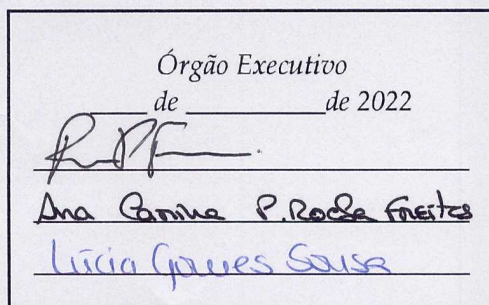 Órgão Executivo
____ de __________ de 2022
Ana P. Rocha Freitas
Lúcia Gomes Sousa